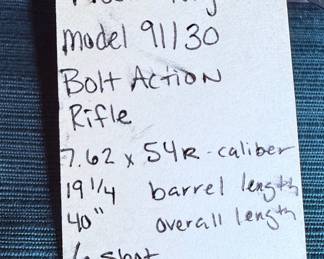 Model 91/30
Bolt Action
Rifle
7.62 x 54R-caliber
19 1/4 barrel length
40" overall length
shot